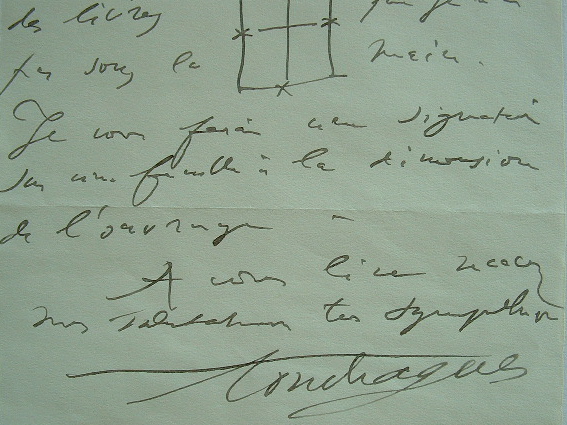 des livres
pas sous la main.
Je vous ferai une signature
sur une feuille à la dimension
de l'ouvrage
A vous lire recevez
mes salutations très sympathiques